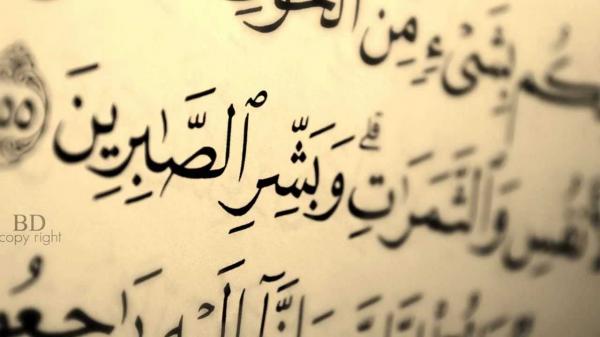 ـكُم بِشَىْءٍ مِّنَ ٱلْخَوْفِ
لْأَنفُسِ وَٱلثَّمَرَٰتِۗ وَبَشِّرِ ٱلصَّٰبِرِينَ ٥٥
وَإِنَّآ إِلَيْهِ رَٰجِعُو
BD
copy right